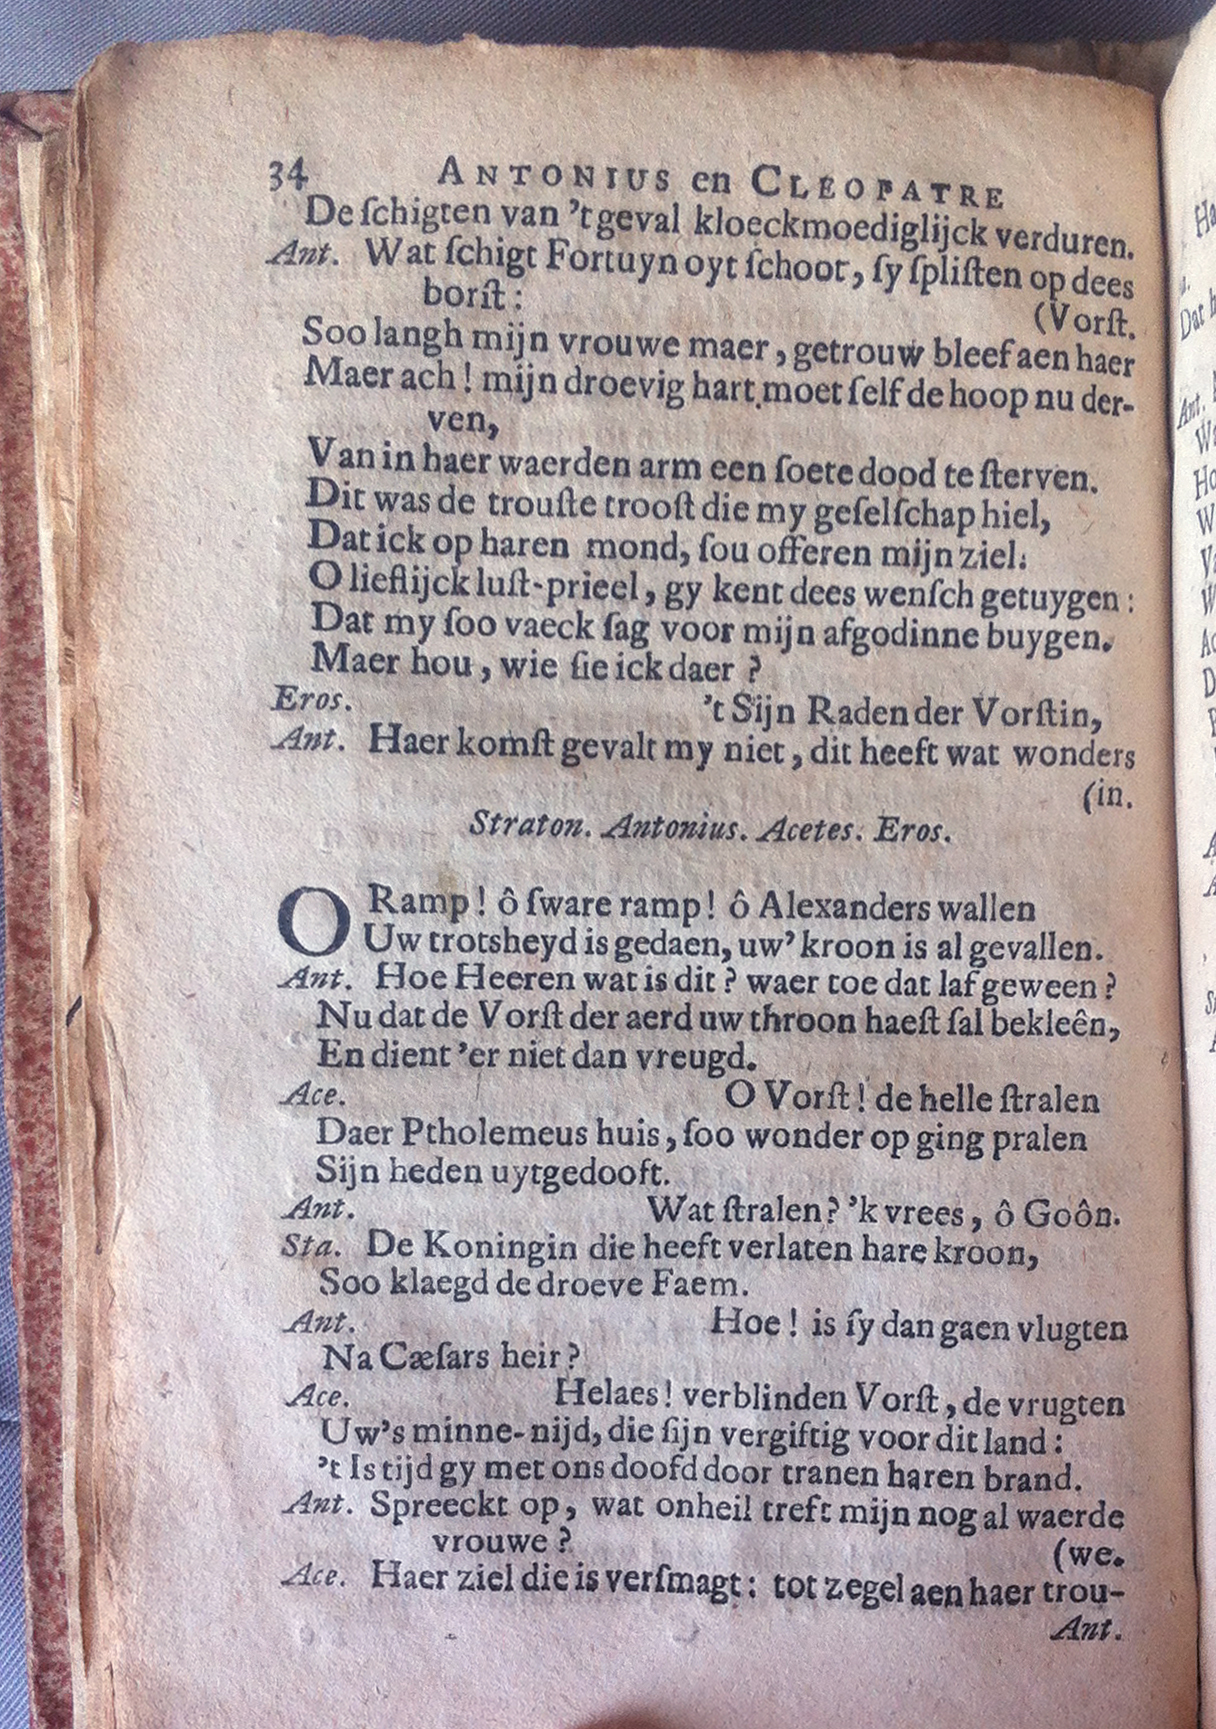 34 ANTONIUS en CLEOPATRE
De ſchigten van ’t geval kloeckmoediglijck verduren.
Ant. Wat ſchigt Fortuyn oyt ſchoot, ſy ſpliſten op dees
borſt: (Vorſt.
Soo langh mijn vrouwe maer, getrouw bleef aen haer
Maer ach! mijn droevig hart moet ſelf de hoop nu der-
ven,
Van in haer waerden arm een ſoete dood te ſterven.
Dit was de trouſte trooſt die my geſelſchap hiel,
Dat ick op haren mond, ſou offeren mijn ziel:
O lieflijck luſt-prieel, gy kent dees wenſch getuygen:
Dat my ſoo vaeck ſag voor mijn afgodinne buygen.
Maer hou, wie ſie ick daer?
Eros. ’t Sijn Raden der Vorſtin,
Ant. Haer komſt gevalt my niet, dit heeft wat wonders
(in.
Straton. Antonius. Acetes. Eros.
O Ramp! ô ſware ramp! ô Alexanders wallen
Uw trotsheyd is gedaen, uw’ kroon is al gevallen.
Ant. Hoe Heeren wat is dit? waer toe dat laf geween?
Nu dat de Vorſt der aerd uw throon haeſt ſal bekleên,
En dient ’er niet dan vreugd.
Ace. O Vorſt! de helle ſtralen
Daer Ptholemeus huis, ſoo wonder op ging pralen
Sijn heden uytgedooft.
Ant. Wat ſtralen? ’k vrees, ô Goôn.
Sta. De Koningin die heeft verlaten hare kroon,
Soo klaegd de droeve Faem.
Ant. Hoe! is ſy dan gaen vlugten
Na Cæſars heir?
Ace. Helaes! verblinden Vorſt, de vrugten
Uw’s minne-nijd, die ſijn vergiftig voor dit land:
’t Is tijd gy met ons doofd door tranen haren brand.
Ant. Spreeckt op, wat onheil treft mijn nog al waerde
vrouwe? (we.
Ace. Haer ziel die is verſmagt: tot zegel aen haer trou-
Ant.